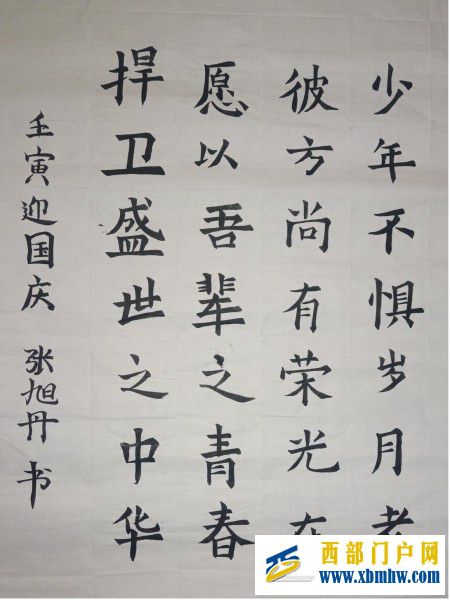 少年不惧岁月老
彼方尚有荣光在
愿以吾辈之青春
捍卫盛世之中华
壬寅迎国庆 张旭丹 书
西部门户网
www.xbmhw.com